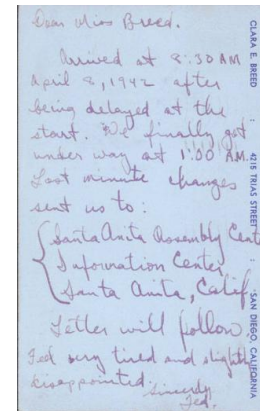 Dear Miss Breed.
Arrived at 8:30 AM
April 8, 1942 after
being delayed at the
start. We finally got
under way at 1:00 AM.
Last minute changes
sent us to:
Santa Anita Assembly Cent
Information Center,
Santa Anita, Calif.
Letter will follow.
Feel very tired and slightly
disappointed.
Sincerely
Ted.
CLARA E. BREED : 4215 TRIAS STREET : SAN DIEGO, CALIFORNIA